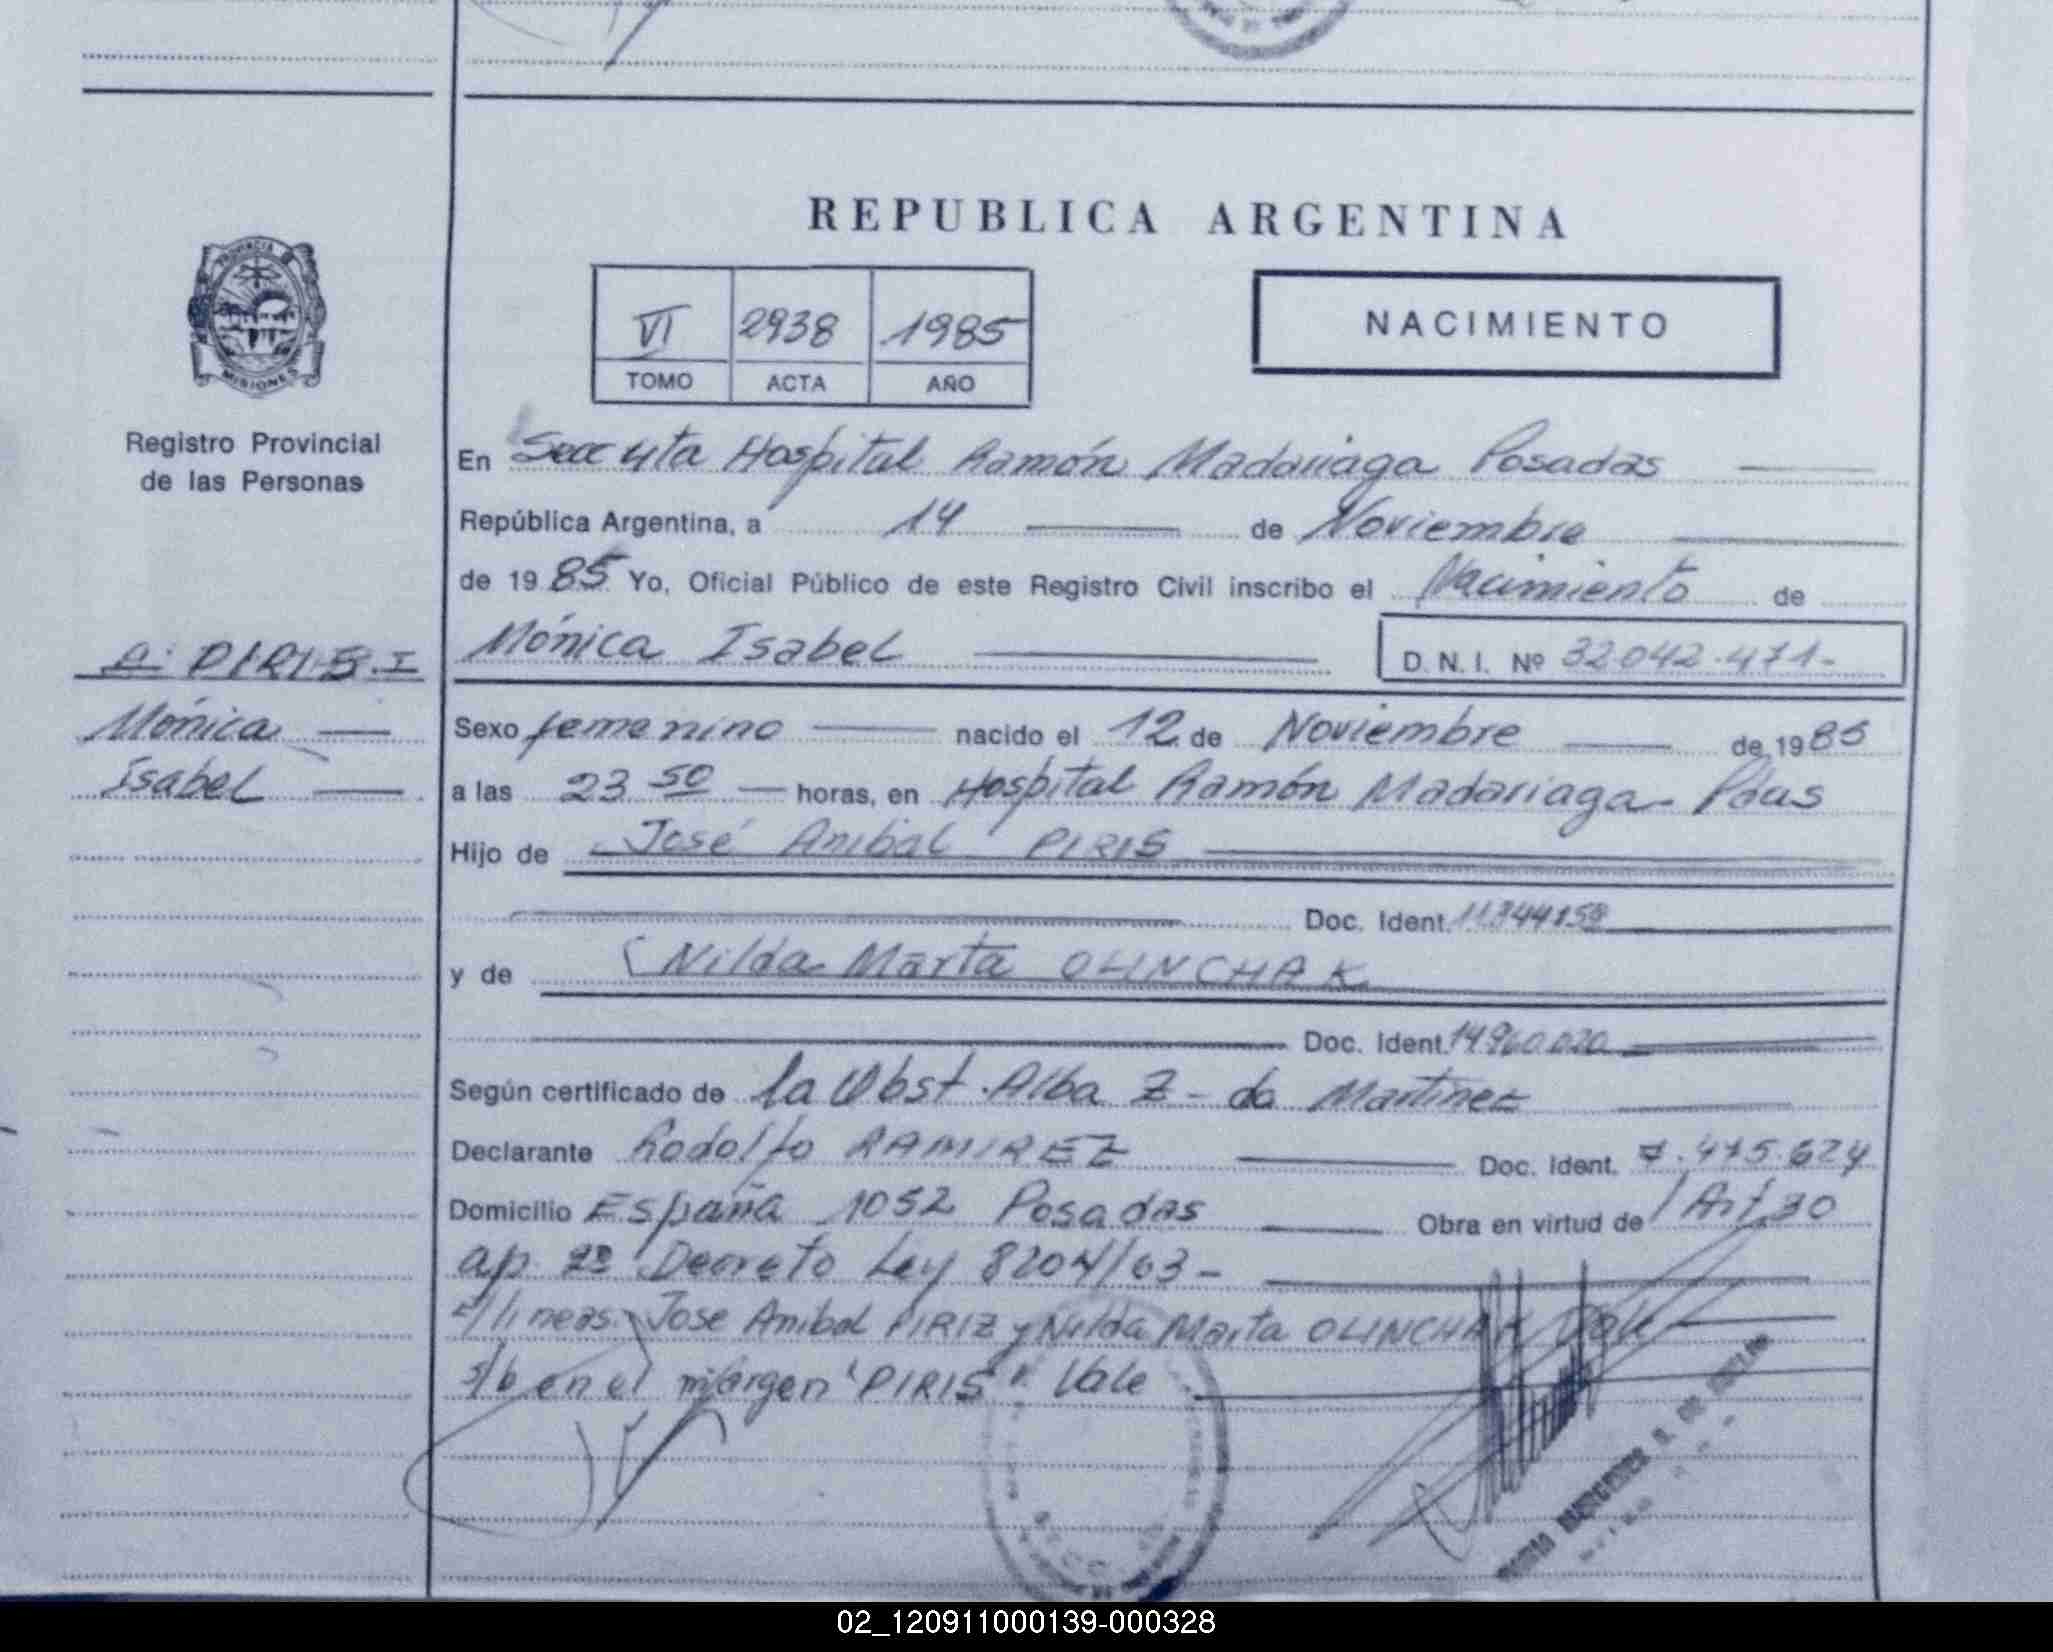 REPUBLICA ARGENTINA
PROVINCIA
MISIONES
Registro Provincial
de las Personas
VI 2938 1985
TOMO ACTA AÑO
NACIMIENTO
En Secc 4ta Hospital Ramón Madariaga Posadas
República Argentina, a 14 de Noviembre
de 1985 Yo, Oficial Público de este Registro Civil inscribo el Nacimiento de
Mónica Isabel D.N.I. Nº 32.042.471-
PIRIS
Mónica
Isabel
Sexo femenino nacido el 12 de Noviembre de 1985
a las 23 50 horas, en Hospital Ramón Madariaga Pdas
Hijo de José Anibal PIRIS
Doc. Ident.
y de Nilda Marta OLINCHAK
Doc. Ident. 14960.020
Según certificado de la Obst. Alba Z- de Martinez
Declarante Rodolfo RAMIREZ Doc. Ident. 7.475.624
Domicilio España 1052 Posadas Obra en virtud de Art. 30
ap. 2º Decreto Ley 8204/63-
E/lineas: Jose Anibal PIRIZ y Nilda Marta OLINCHAK Vale
s/b en el margen "PIRIS" Vale
02_120911000139-000328